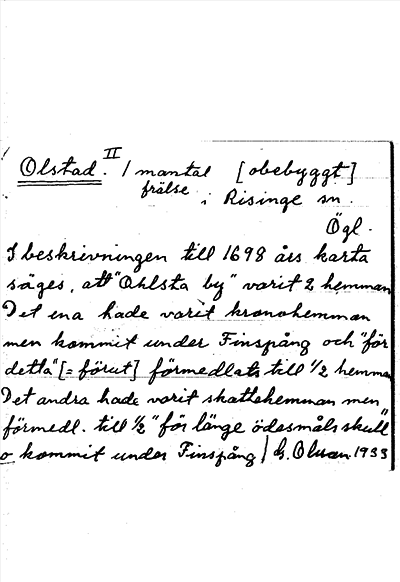 Olstad. II 1 mantal [obebyggt]
frälse i Risinge sn.
Ögl.
I beskrivningen till 1698 års karta
säges, att "Ohlsta by" varit 2 hemman
Det ena hade varit kronohemman
men kommit under Finspång och "för
detta" [= förut] förmedlats till 1/2 hemman
Det andra hade varit skattehemman men
förmedl. till 1/2 "för länge ödesmåls skull"
o kommit under Finspång / 1933